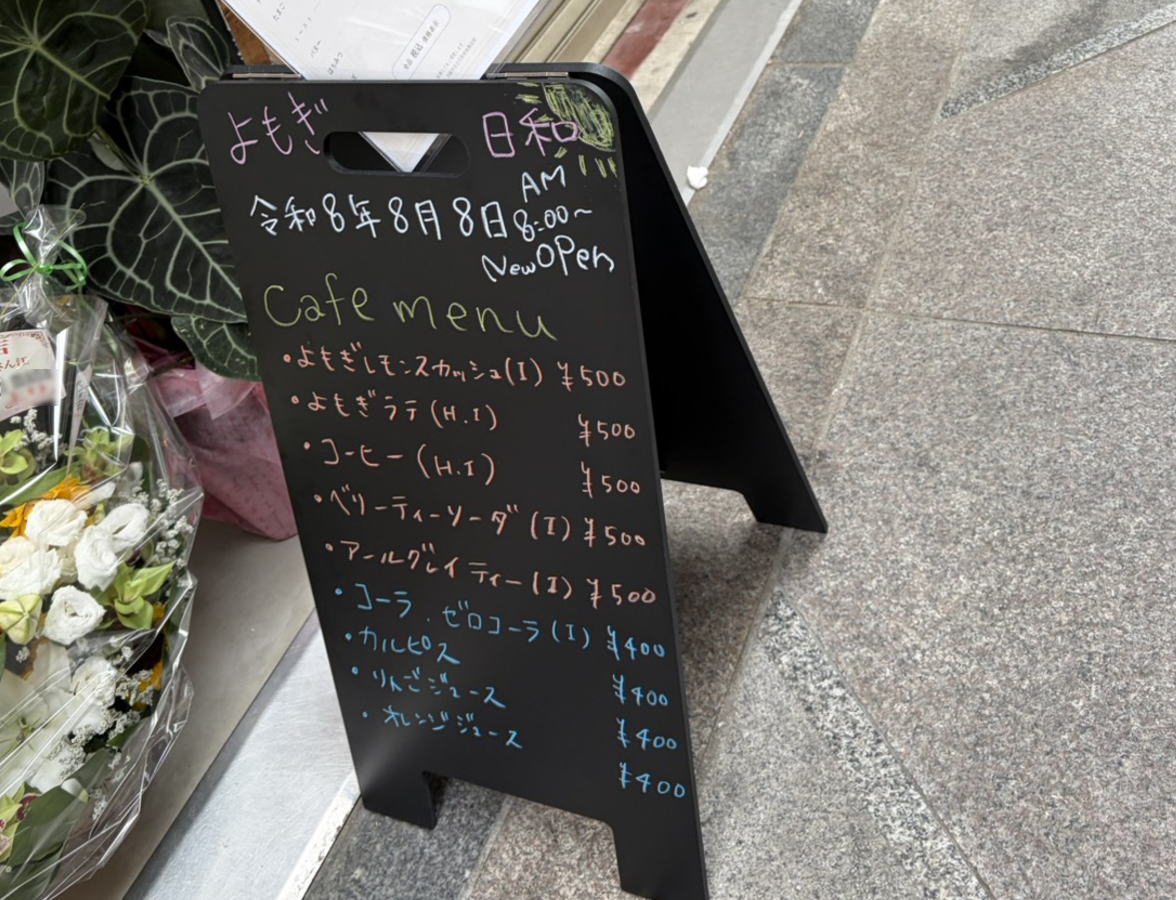 よもぎ 日和
令和8年8月8日 AM 8:00~
New OPen
Cafe menu
・よもぎレモンスカッシュ(I) ¥500
・よもぎラテ(H.I) ¥500
・コーヒー(H.I) ¥500
・ベリーティーソーダ(I) ¥500
・アールグレイティー(I) ¥500
・コーラ.ゼロコーラ(I) ¥400
・カルピス ¥400
・りんごジュース ¥400
・オレンジジュース ¥400